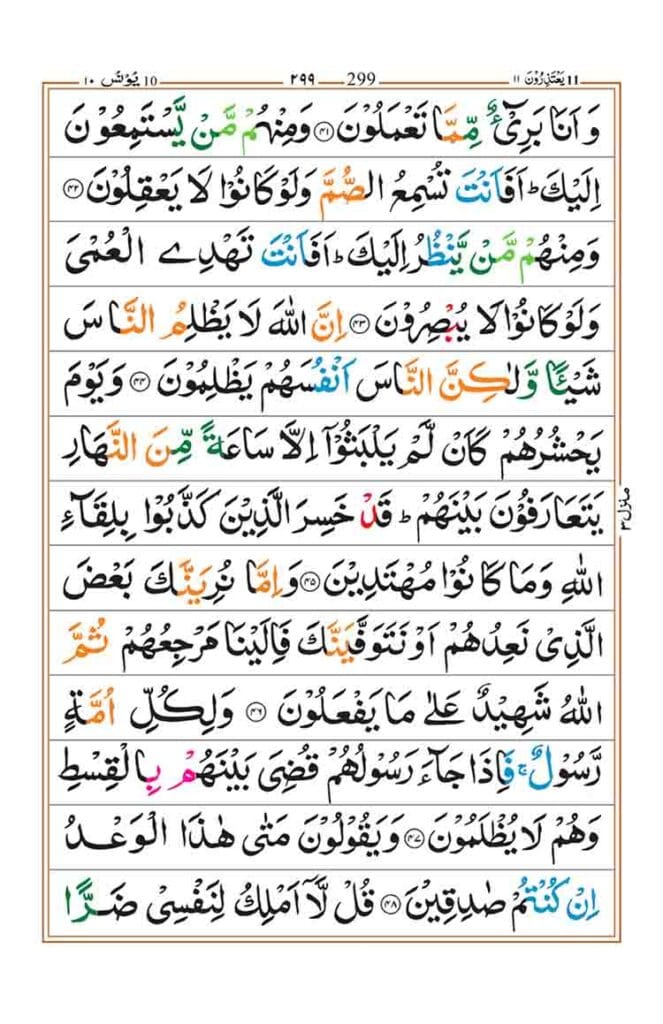 ١٠ يُوْنُس 10
٢٩٩ 299
١١ يَعْتَذِرُوْنَ 11
وَ اَنَا بَرِیْٓءٌ مِّمَّا تَعْمَلُوْنَ ﴿۴۱﴾ وَمِنْهُمْ مَّنْ یَّسْتَمِعُوْنَ
اِلَیْكَ ؕ اَفَاَنْتَ تُسْمِعُ الصُّمَّ وَلَوْ كَانُوْا لَا یَعْقِلُوْنَ ﴿۴۲﴾
وَمِنْهُمْ مَّنْ یَّنْظُرُ اِلَیْكَ ؕ اَفَاَنْتَ تَهْدِی الْعُمْیَ
وَلَوْ كَانُوْا لَا یُبْصِرُوْنَ ﴿۴۳﴾ اِنَّ اللّٰهَ لَا یَظْلِمُ النَّاسَ
شَیْـًٔا وَّلٰكِنَّ النَّاسَ اَنْفُسَهُمْ یَظْلِمُوْنَ ﴿۴۴﴾ وَیَوْمَ
یَحْشُرُهُمْ كَاَنْ لَّمْ یَلْبَثُوْۤا اِلَّا سَاعَةً مِّنَ النَّهَارِ
یَتَعَارَفُوْنَ بَیْنَهُمْ ؕ قَدْ خَسِرَ الَّذِیْنَ كَذَّبُوْا بِلِقَآءِ
اللّٰهِ وَمَا كَانُوْا مُهْتَدِیْنَ ﴿۴۵﴾ وَاِمَّا نُرِیَنَّكَ بَعْضَ
الَّذِیْ نَعِدُهُمْ اَوْ نَتَوَفَّیَنَّكَ فَاِلَیْنَا مَرْجِعُهُمْ ثُمَّ
اللّٰهُ شَهِیْدٌ عَلٰی مَا یَفْعَلُوْنَ ﴿۴۶﴾ وَلِكُلِّ اُمَّةٍ
رَّسُوْلٌ ۚ فَاِذَا جَآءَ رَسُوْلُهُمْ قُضِیَ بَیْنَهُمْ بِالْقِسْطِ
وَهُمْ لَا یُظْلَمُوْنَ ﴿۴۷﴾ وَیَقُوْلُوْنَ مَتٰی هٰذَا الْوَعْدُ
اِنْ كُنْتُمْ صٰدِقِیْنَ ﴿۴۸﴾ قُلْ لَّاۤ اَمْلِكُ لِنَفْسِیْ ضَرًّا
منزل ۳